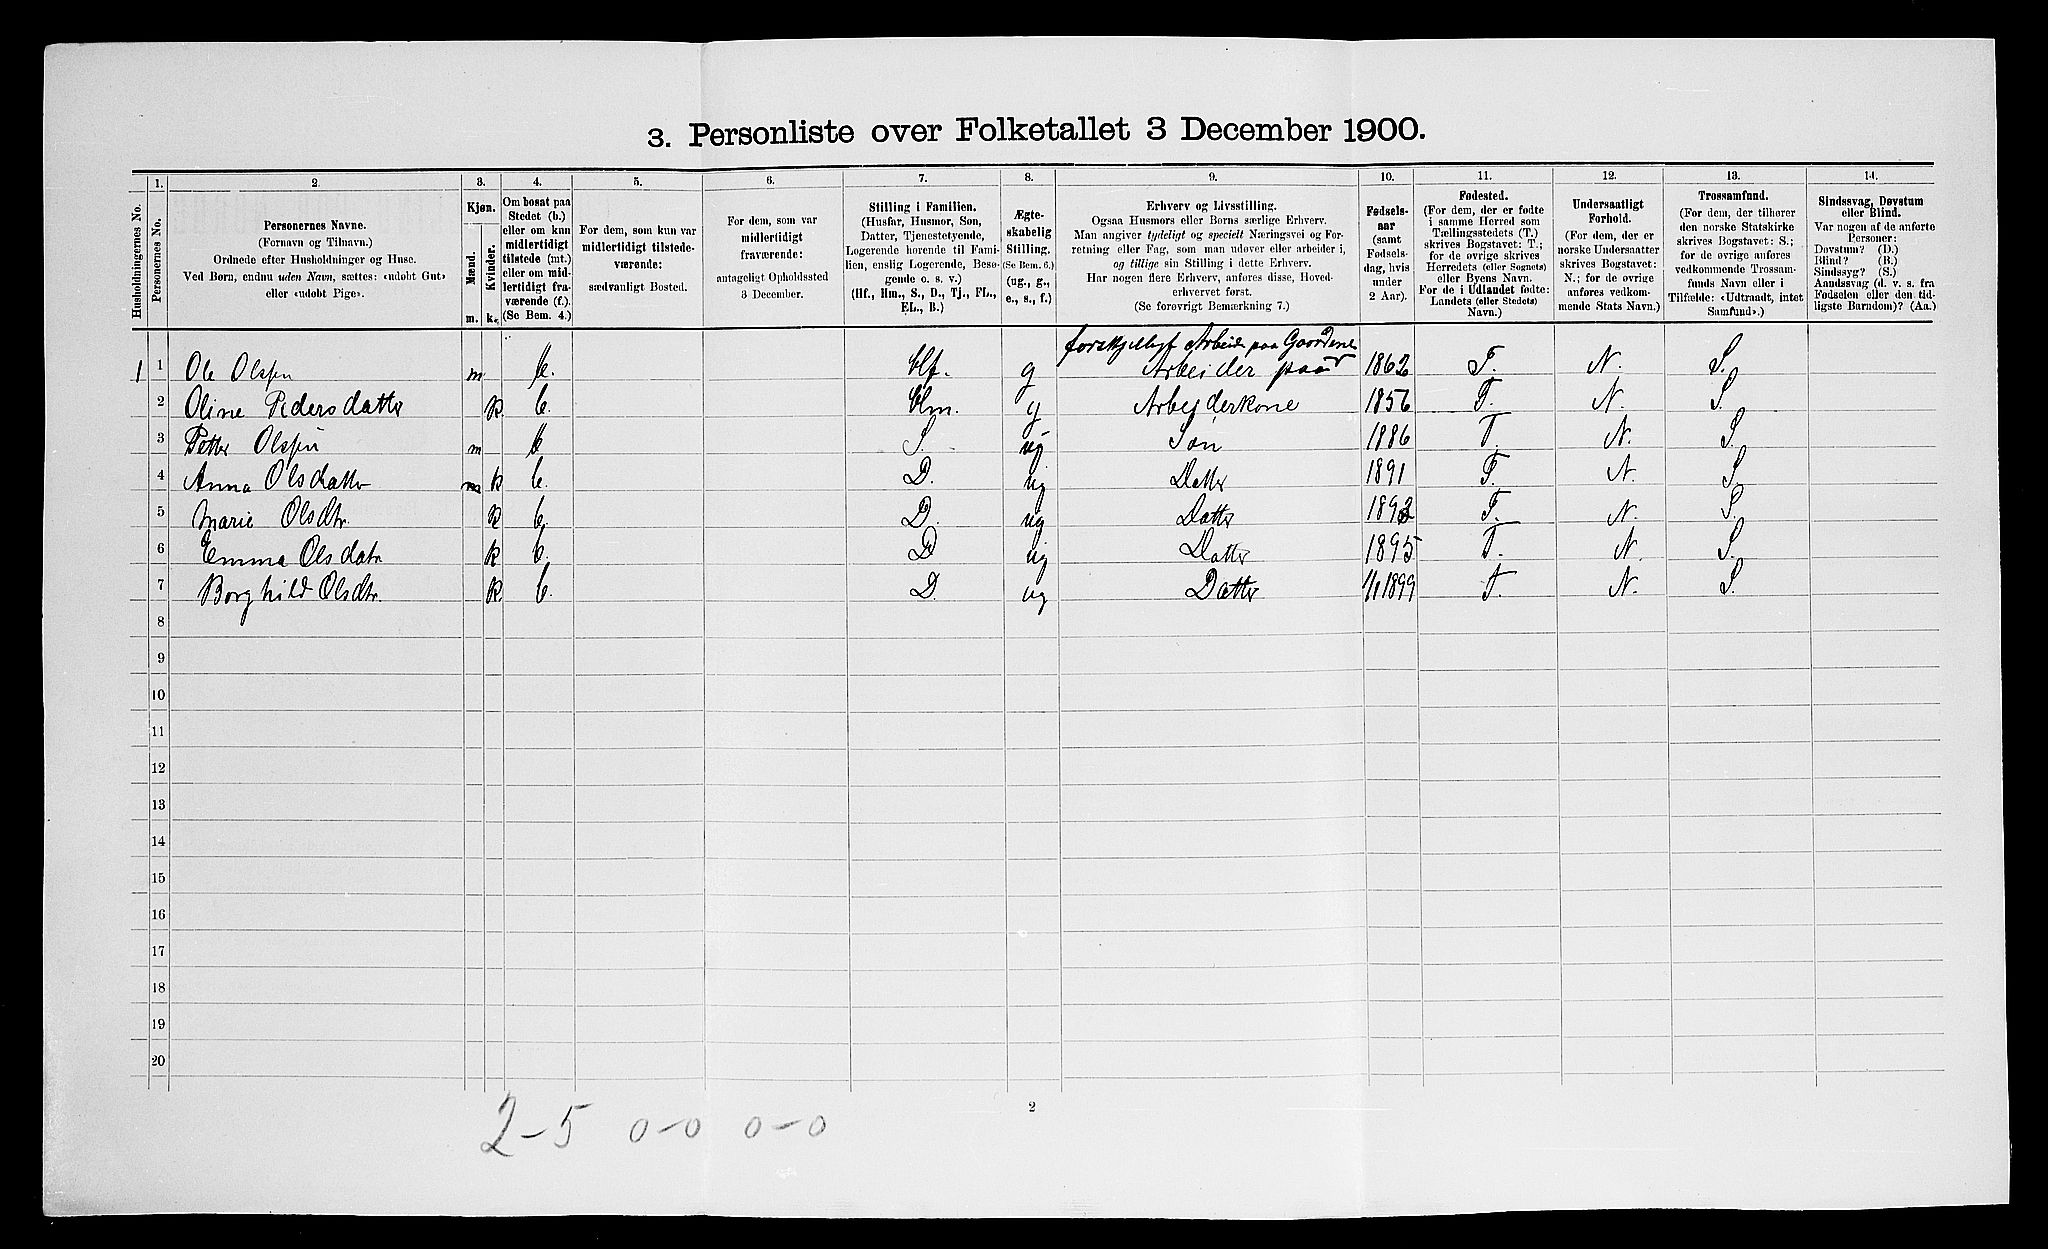 3. Personliste over Folketallet 3 December 1900.
1. 2. 3. 4. 5. 6. 7. 8. 9. 10. 11. 12. 13. 14.
Husholdningernes No.
Personernes No.
Personernes Navne.
(Fornavn og Tilnavn.)
Ordnede efter Husholdninger og Huse.
Ved Børn, endnu uden Navn, sættes: «udøbt Gut»
eller «udøbt Pige».
Kjøn.
Mænd.
Kvinder.
m. k.
Om bosat paa
Stedet (b.)
eller om kun
midlertidigt
tilstede (mt.)
eller om mid-
lertidigt fra-
værende (f.).
(Se Bem. 4.)
For dem, som kun var
midlertidigt tilstede-
værende:
sædvanligt Bosted.
For dem, som var
midlertidigt
fraværende:
antageligt Opholdssted
3 December.
Stilling i Familien.
(Husfar, Husmor, Søn,
Datter, Tjenestetyende,
Logerende hørende til Fami-
lien, enslig Logerende, Besø-
gende o. s. v.)
(Hf., Hm., S., D., Tj., FL.,
EL., B.)
Ægte-
skabelig
Stilling.
(Se Bem. 6.)
(ug., g.,
e., s., f.)
Erhverv og Livsstilling.
Ogsaa Husmors eller Børns særlige Erhverv.
Man angiver tydeligt og specielt Næringsvei og For-
retning eller Fag, som man udøver eller arbeider i,
og tillige sin Stilling i dette Erhverv.
Har nogen flere Erhverv, anføres disse, Hoved-
erhvervet først.
(Se forøvrigt Bemærkning 7.)
Fødsels-
aar
(samt
Fødsels-
dag, hvis
under
2 Aar).
Fødested.
(For dem, der er fødte
i samme Herred som
Tællingsstedets (T.)
skrives Bogstavet: T.;
for de øvrige skrives
Herredets (eller Sognets)
eller Byens Navn.
For de i Udlandet fødte:
Landets (eller Stedets)
Navn.)
Undersaatligt
Forhold.
(For dem, der er
norske Undersaatter
skrives Bogstavet:
N.; for de øvrige
anføres vedkom-
mende Stats Navn.)
Trossamfund.
(For dem, der tilhører
den norske Statskirke
skrives Bogstavet: S.;
for de øvrige anføres
vedkommende Trossam-
funds Navn eller i
Tilfælde: «Udtraadt, intet
Samfund».)
Sindssvag, Døvstum
eller Blind.
Var nogen af de anførte
Personer:
Døvstum? (D.)
Blind? (B.)
Sindssyg? (S.)
Aandssvag (d. v. s. fra
Fødselen eller den tid-
ligste Barndom)? (Aa.)
forskjelligt Arbeide paa Gaardene
1 1 Ole Olsen m b. Hf. g Arbeider paa 1862 T. N. S.
2 Oline Pedersdatter k b. Hm. g Arbeiderkone 1856 T. N. S.
3 Petter Olsen m b S. ug Søn 1886 T. N. S.
4 Anna Olsdatter m k b. D. ug Datter 1891 T. N. S.
5 Marie Olsdtr. k b. D. ug Datter 1893 T. N. S.
6 Emma Olsdatr k b. D ug Datter 1895 T. N. S.
7 Borghild Olsdtr. k b. D. ug Datter 1/1 1899 T. N. S.
8
9
10
11
12
13
14
15
16
17
18
19
20
2
2-5 0-0 0-0